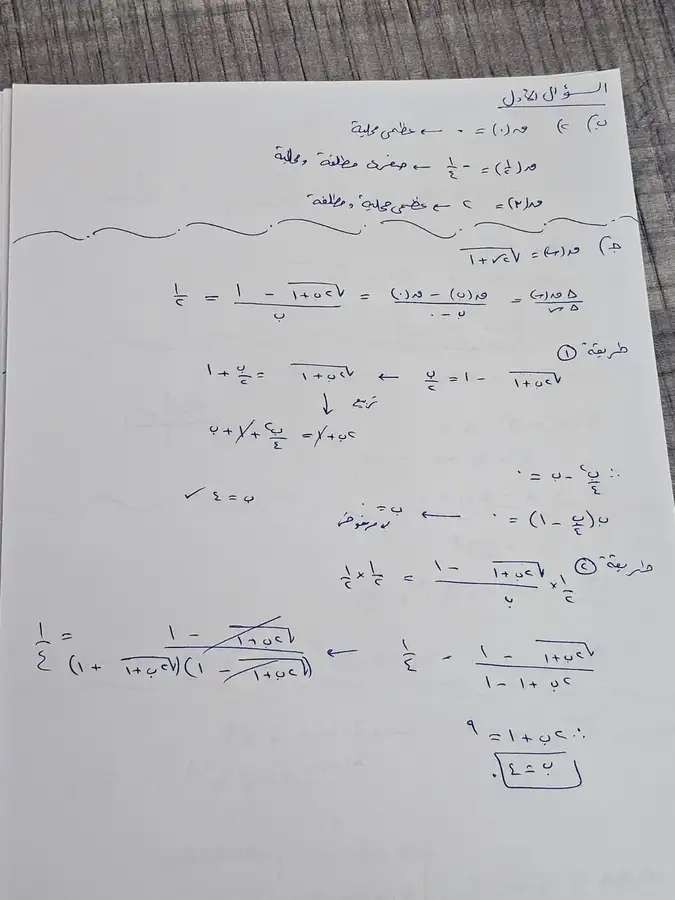 السؤال الأول
ب) ٢) ق(٠) = ٠ ← عظمى محلية
ق(١/٢) = -١/٤ ← صغرى مطلقة ومحلية
ق(٢) = ٢ ← عظمى محلية ومطلقة
ج) ق(س) = √(٢س+١)
Δق(س)/Δس = (ق(ب) - ق(٠))/(ب - ٠) = (√(٢ب+١) - ١)/ب = ١/٢
طريقة ①
√(٢ب+١) - ١ = ب/٢ ← √(٢ب+١) = ب/٢ + ١
↓ تربيع
٢ب + ١ = ب²/٤ + ١ + ب
∴ ب²/٤ - ب = ٠
ب(ب/٤ - ١) = ٠ ← ب = ٠ مرفوض ب = ٤ ✓
طريقة ②
١/٢ × (√(٢ب+١) - ١)/ب = ١/٢ × ١/٢
(√(٢ب+١) - ١)/(٢ب + ١ - ١) = ١/٤ ← (√(٢ب+١) - ١)/((√(٢ب+١) - ١)(√(٢ب+١) + ١)) = ١/٤
∴ ٢ب + ١ = ٩
ب = ٤